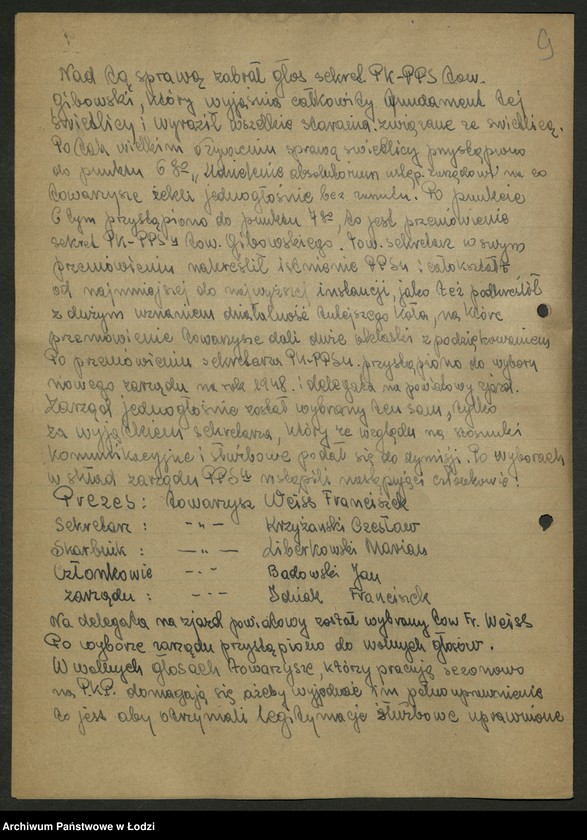 9
Nad tą sprawą zabrał głos sekret. PK-PPS tow.
Gibowski, który wyjaśnia całkowity fundament tej
świetlicy i wyraził wszelkie starania związane ze świetlicą.
Po tak wielkim ożywieniu sprawą świetlicy przystąpiono
do punktu 6 go „Udzielenie absolutorium ustęp. zarządowi na co
towarzysze rzekli jednogłośnie bez Po punkcie
6 tym przystąpiono do punktu 7 go, to jest przemówienie
sekret PK-PPSu tow. Gibowskiego. Tow. sekretarz w swym
przemówieniu nakreślił istnienie PPSu i całokształt
od najmniejszej do najwyższej instancji, jako też podkreślił
z dużym uznaniem działalność tutejszego koła, na które
przemówienie towarzysze dali duże oklaski z podziękowaniem
Po przemówieniu sekretarza PK-PPSu. przystąpiono do wyboru
nowego zarządu na rok 1948. i delegata na powiatowy zjazd.
Zarząd jednogłośnie został wybrany ten sam, tylko
za wyjątkiem sekretarza, który ze względu na stosunki
komunikacyjne i służbowe podał się do dymisji. Po wyborach
w skład zarządu PPSu wstąpili następujący członkowie:
Prezes: towarzysz Weiss Franciszek
Sekretarz: – „ – Krzyżański Czesław
Skarbnik: – „ – Liberkowski Marian
Członkowie – „ – Badowski Jan
zarządu: – „ – Idniak Franciszek
Na delegata na zjazd powiatowy został wybrany tow Fr. Weiss
Po wyborze zarządu przystąpiono do wolnych głosów.
W wolnych głosach towarzysze, którzy pracują sezonowo
na P.K.P. domagają się ażeby wyjednać im pełno uprawnienie
to jest aby otrzymali legitymacje służbowe uprawnione
Archiwum Państwowe w Łodzi